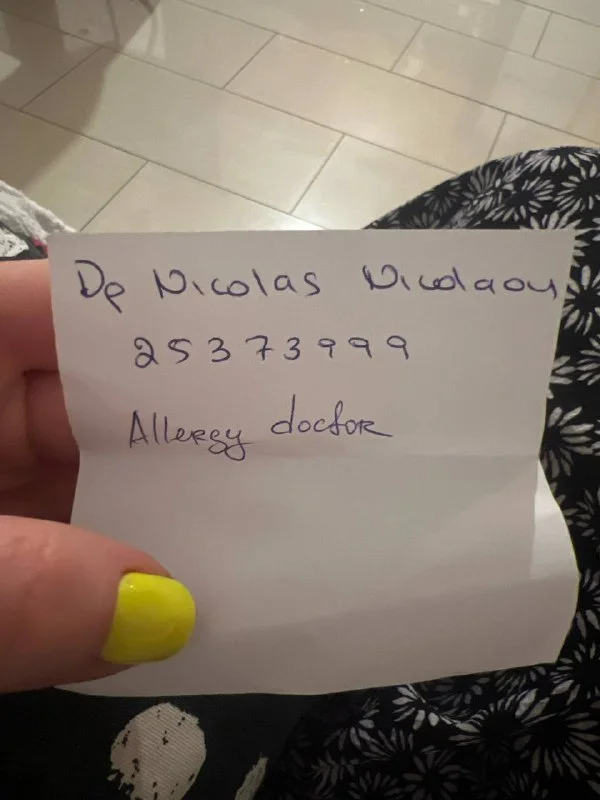 Dr Nicolas Nicolaou
25373999
Allergy doctor